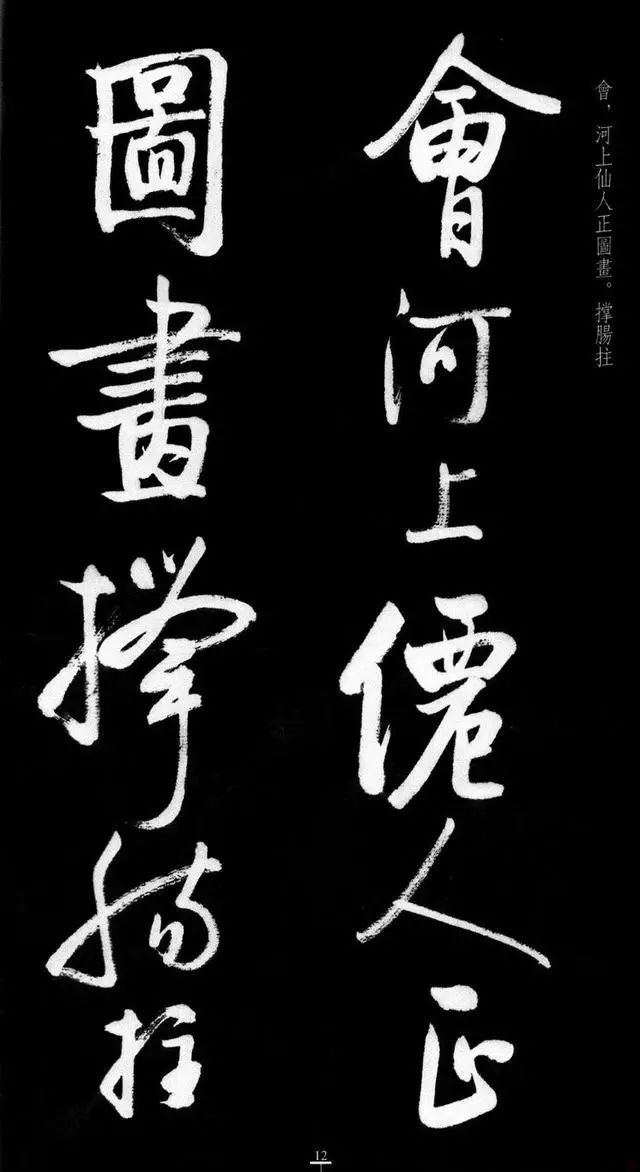 會，河上仙人正圖畫。撑腸拄
會河上僊人正
圖畫撑腸拄
12